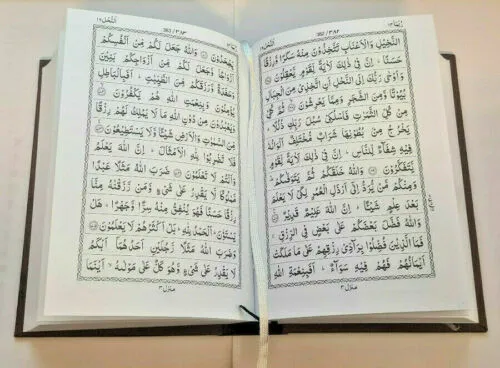 رُبَمَا ١٤
382 / ٣٨٢
اَلنَّحْل ١٦
النَّخِيْلِ وَالْاَعْنَابِ تَتَّخِذُوْنَ مِنْهُ سَكَرًا وَّرِزْقًا
حَسَنًا ؕ اِنَّ فِيْ ذٰلِكَ لَاٰيَةً لِّقَوْمٍ يَّعْقِلُوْنَ
وَاَوْحٰى رَبُّكَ اِلَى النَّحْلِ اَنِ اتَّخِذِيْ مِنَ الْجِبَالِ
بُيُوْتًا وَّمِنَ الشَّجَرِ وَمِمَّا يَعْرِشُوْنَ ثُمَّ كُلِيْ
مِنْ كُلِّ الثَّمَرٰتِ فَاسْلُكِيْ سُبُلَ رَبِّكِ ذُلُلًا ؕ
يَخْرُجُ مِنْۢ بُطُوْنِهَا شَرَابٌ مُّخْتَلِفٌ اَلْوَانُهٗ
فِيْهِ شِفَآءٌ لِّلنَّاسِ ؕ اِنَّ فِيْ ذٰلِكَ لَاٰيَةً لِّقَوْمٍ
يَّتَفَكَّرُوْنَ وَاللّٰهُ خَلَقَكُمْ ثُمَّ يَتَوَفّٰىكُمْ
وَمِنْكُمْ مَّنْ يُّرَدُّ اِلٰٓى اَرْذَلِ الْعُمُرِ لِكَيْ لَا يَعْلَمَ
بَعْدَ عِلْمٍ شَيْئًا ؕ اِنَّ اللّٰهَ عَلِيْمٌ قَدِيْرٌ
وَاللّٰهُ فَضَّلَ بَعْضَكُمْ عَلٰى بَعْضٍ فِي الرِّزْقِ ۚ
فَمَا الَّذِيْنَ فُضِّلُوْا بِرَآدِّيْ رِزْقِهِمْ عَلٰى مَا مَلَكَتْ
اَيْمَانُهُمْ فَهُمْ فِيْهِ سَوَآءٌ ؕ اَفَبِنِعْمَةِ اللّٰهِ
منزل ٣
رُبَمَا ١٤
383 / ٣٨٣
اَلنَّحْل ١٦
يَجْحَدُوْنَ وَاللّٰهُ جَعَلَ لَكُمْ مِّنْ اَنْفُسِكُمْ
اَزْوَاجًا وَّجَعَلَ لَكُمْ مِّنْ اَزْوَاجِكُمْ بَنِيْنَ
وَحَفَدَةً وَّرَزَقَكُمْ مِّنَ الطَّيِّبٰتِ ؕ اَفَبِالْبَاطِلِ
يُؤْمِنُوْنَ وَبِنِعْمَتِ اللّٰهِ هُمْ يَكْفُرُوْنَ
وَيَعْبُدُوْنَ مِنْ دُوْنِ اللّٰهِ مَا لَا يَمْلِكُ لَهُمْ رِزْقًا
مِّنَ السَّمٰوٰتِ وَالْاَرْضِ شَيْئًا وَّلَا يَسْتَطِيْعُوْنَ
فَلَا تَضْرِبُوْا لِلّٰهِ الْاَمْثَالَ ؕ اِنَّ اللّٰهَ يَعْلَمُ
وَاَنْتُمْ لَا تَعْلَمُوْنَ ضَرَبَ اللّٰهُ مَثَلًا عَبْدًا
مَّمْلُوْكًا لَّا يَقْدِرُ عَلٰى شَيْءٍ وَّمَنْ رَّزَقْنٰهُ مِنَّا
رِزْقًا حَسَنًا فَهُوَ يُنْفِقُ مِنْهُ سِرًّا وَّجَهْرًا ؕ هَلْ
يَسْتَوٗنَ ؕ اَلْحَمْدُ لِلّٰهِ ؕ بَلْ اَكْثَرُهُمْ لَا يَعْلَمُوْنَ
وَضَرَبَ اللّٰهُ مَثَلًا رَّجُلَيْنِ اَحَدُهُمَآ اَبْكَمُ
لَا يَقْدِرُ عَلٰى شَيْءٍ وَّهُوَ كَلٌّ عَلٰى مَوْلٰىهُ ۙ اَيْنَمَا
منزل ٣